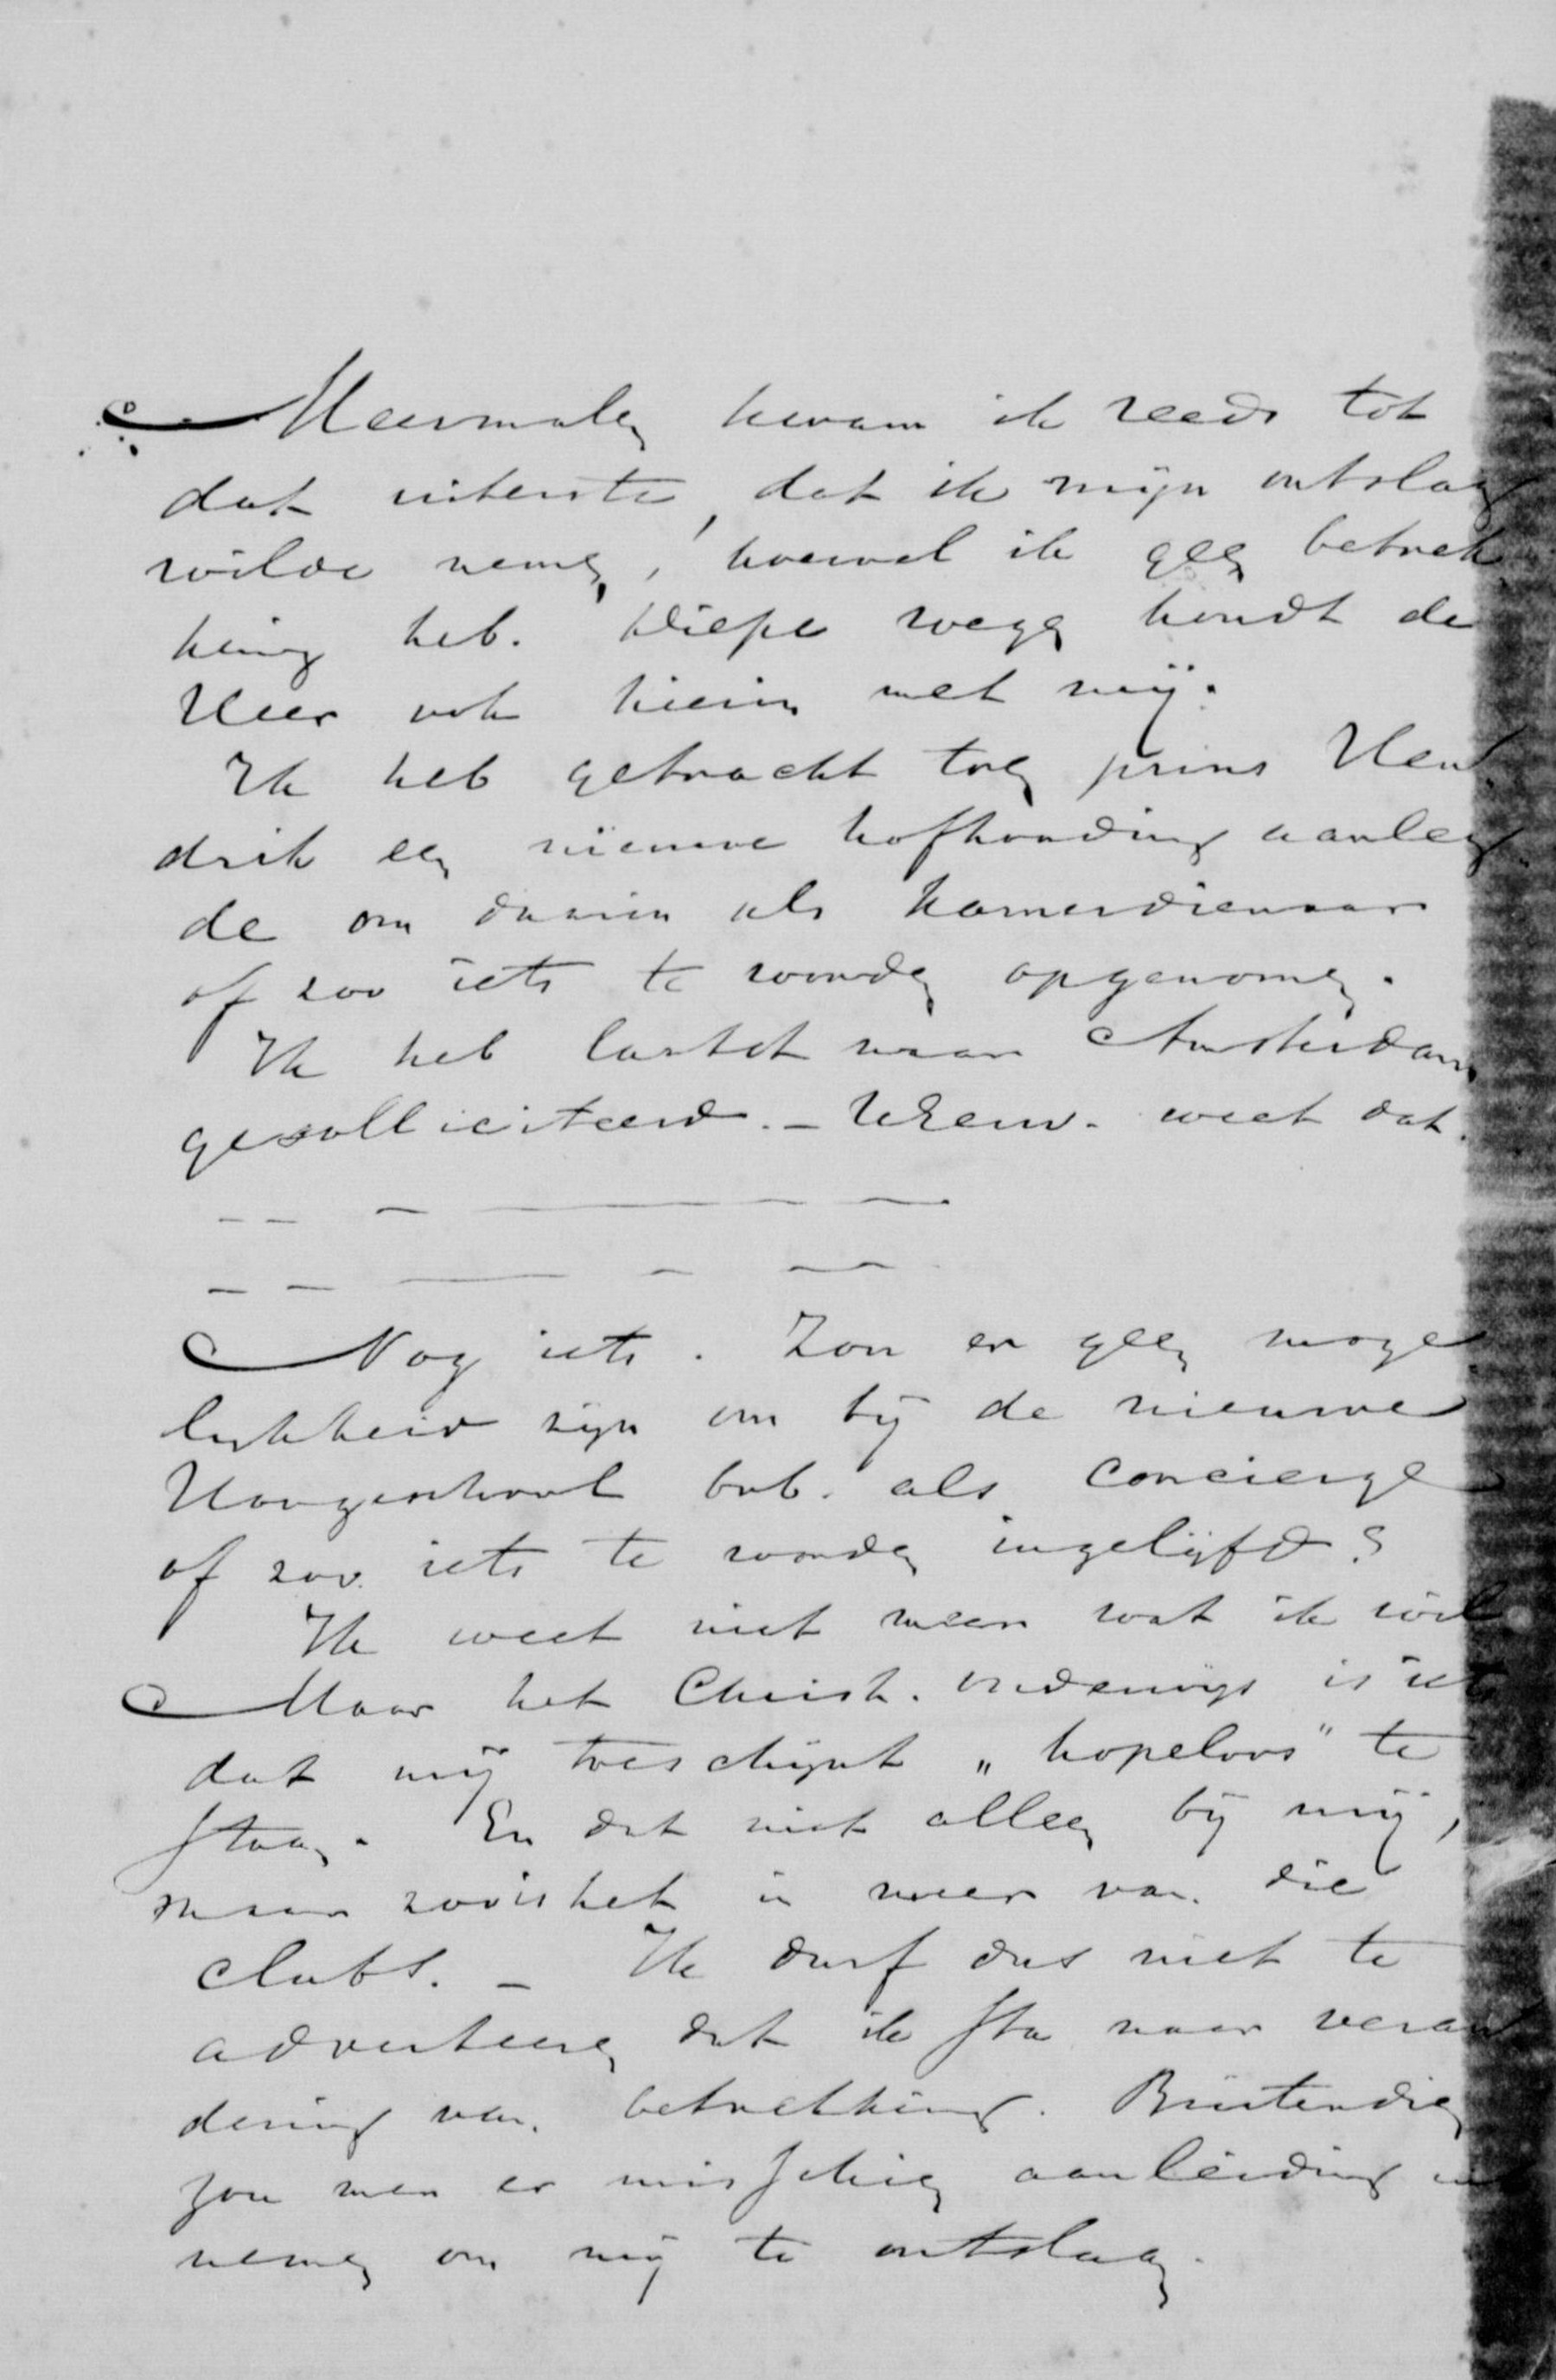 Meermalen kwam ik reeds tot
dat uiterste, dat ik mijn ontslag
wilde nemen, hoewel ik geen betrek
king heb. Diepe wegen houdt de
Heer ook hierin met mij.
Ik heb getracht toen prins Hen
drik een nieuwe hofhouding aanleg
de om daarin als kamerdienaar
of zoo iets te worden opgenomen.
Ik heb laatst naar Amsterdam
gesolliciteerd. - UEerw. weet dat.
Nog iets. Zou er geen moge
lykheid zijn om bij de nieuwe
Hoogeschool bvb. als concierge
of zoo iets te worden ingelijfd?
Ik weet niet meer wat ik wil
Maar het Christ. onderwijs is iets
dat mij toeschijnt „hopeloos" te
staan. En dat niet alleen bij mij,
maar zoo is het in meer van die
clubs. - Ik durf dus niet te
adverteeren dat ik sta naar veran
dering van betrekking. Buitendien
zou men er misschien aanleiding in
nemen om mij te ontslaan.